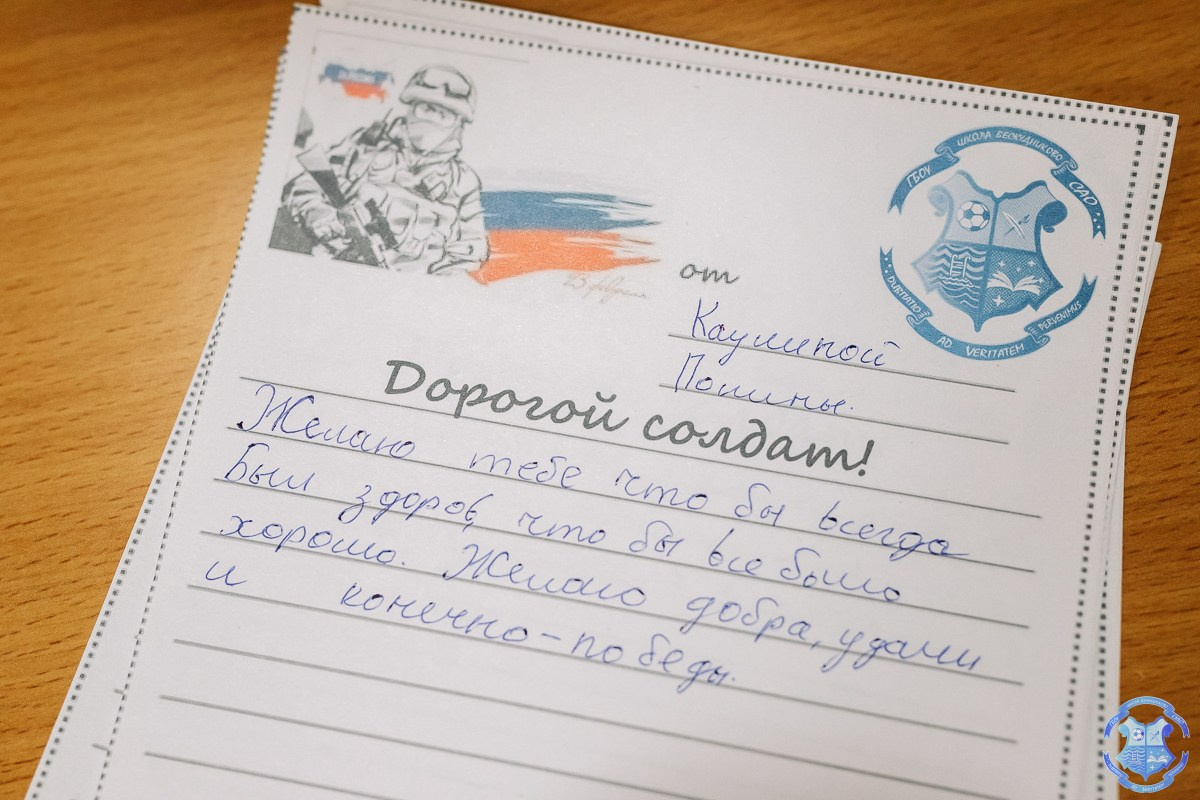 ГБОУ ШКОЛА БЕСКУДНИКОВО САО
DUBITATIO AD VERITATEM PERVENIMUS
23 февраля
от
Каулиной
Полины.
Дорогой солдат!
Желаю тебе что бы всегда
Был здоров, что бы все было
хорошо. Желаю добра, удачи
и конечно-победы.